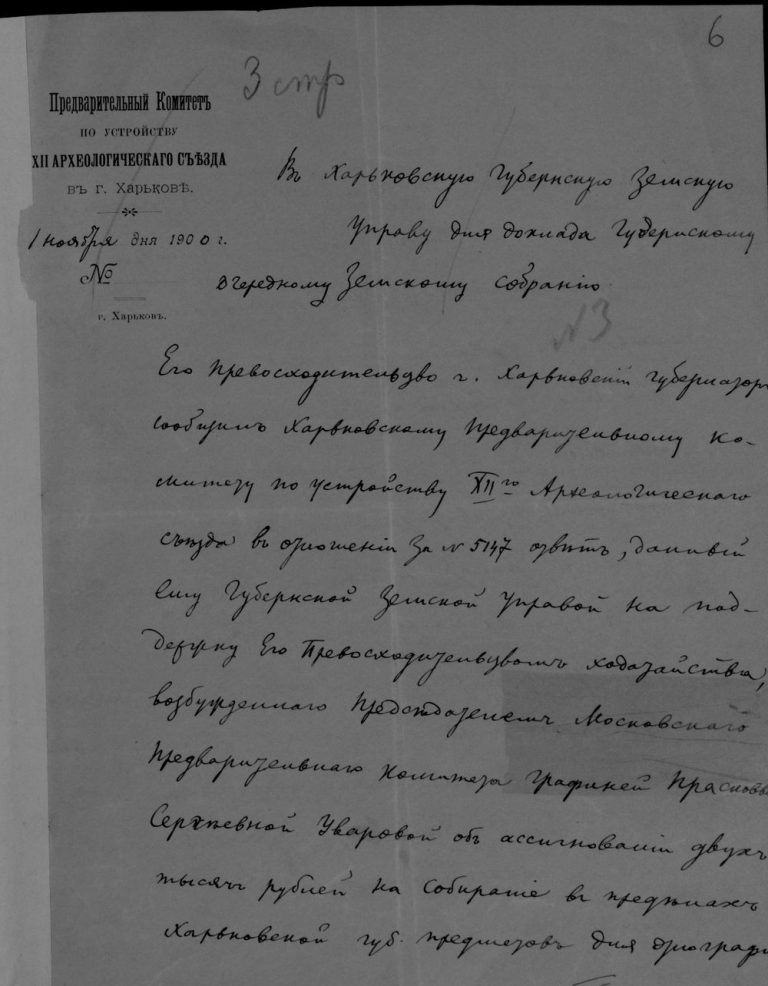 6
3 стр
Предварительный Комитетъ
ПО УСТРОЙСТВУ
XII АРХЕОЛОГИЧЕСКАГО СЪѢЗДА
въ г. Харьковѣ.
1 ноября дня 1900 г.
№
г. Харьковъ.
Въ Харьковскую Губернскую Земскую
Управу для доклада Губернскому
очередному Земскому собранію.
N 3
Его Превосходительство г. Харьковскій Губернаторъ
сообщилъ Харьковскому Предварительному Ко-
митету по устройству XII го Археологическаго
съѣзда въ отношеніи за № 5147 отвѣтъ, данный
ему Губернской Земской Управой на под-
держку Его Превосходительствомъ ходатайства,
возбужденнаго Предсѣдателемъ Московскаго
Предварительнаго Комитета графиней Прасковь
Сергѣевной Уваровой объ ассигнованіи двухъ
тысячъ рублей на собираніе въ предѣлахъ
Харьковской губ. предметовъ для этнографи